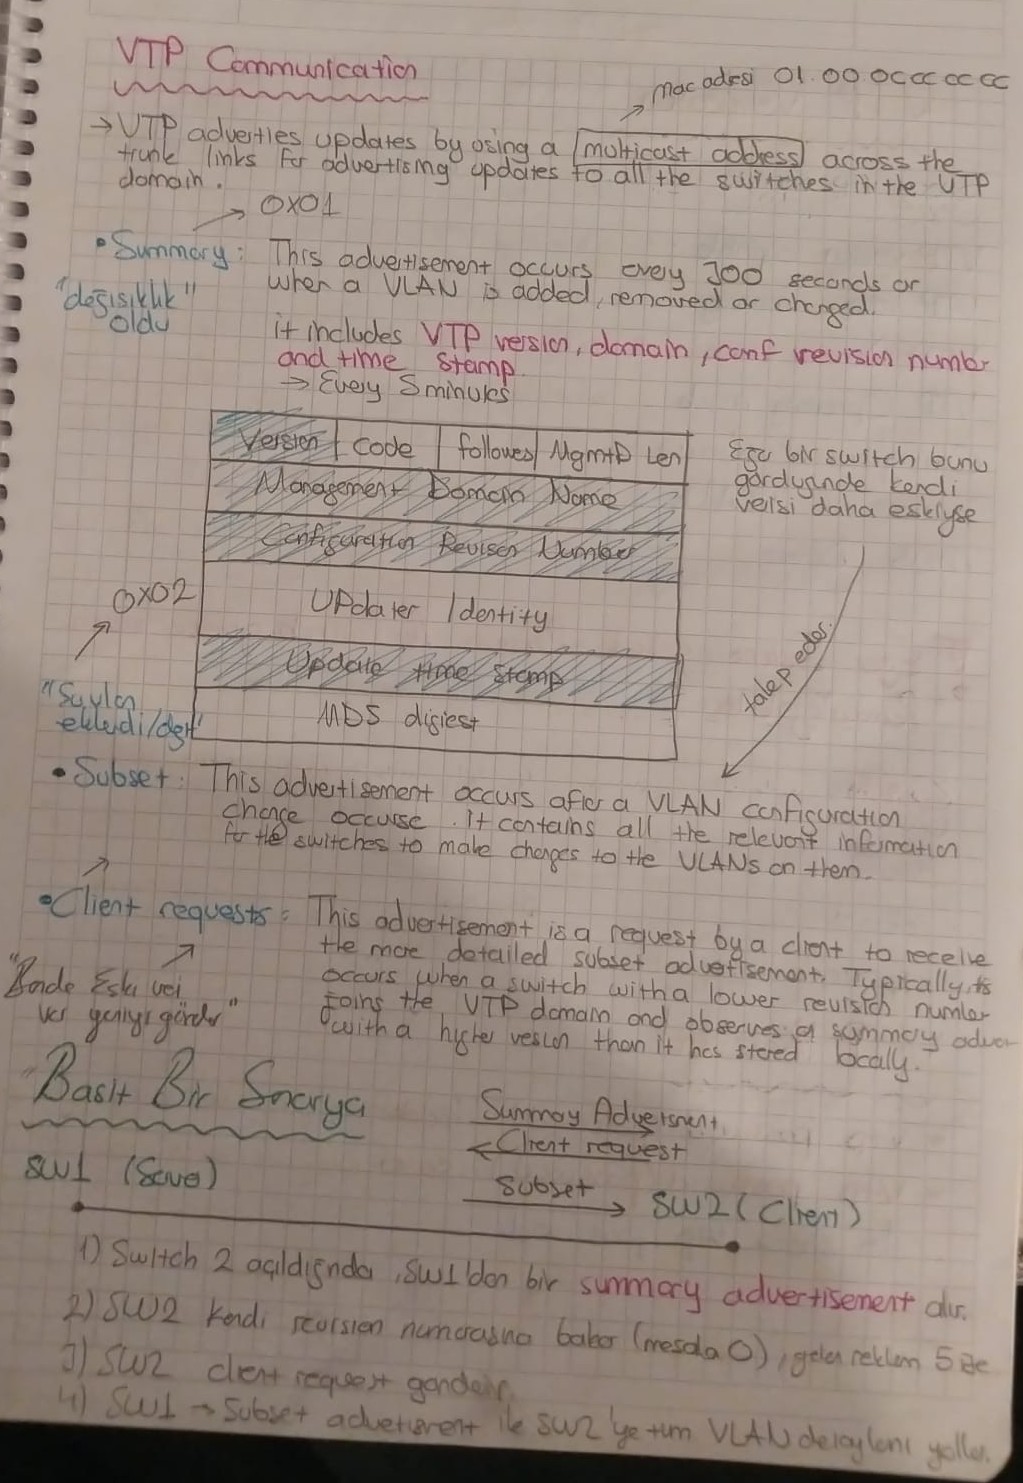 VTP Communication
mac adresi 01.00.0ccc cc cc
→ VTP adverties updates by using a multicast address across the
trunk links for advertising updates to all the switches in the VTP
domain.
→ 0x01
• Summary: This advertisement occurs every 300 seconds or
when a VLAN is added, removed or changed.
"değişiklik
oldu"
it includes VTP version, domain, conf revision number
and time stamp
→ Every 5 minutes
Version code followes MgmtD Len
Management Domain Name
Configuration Revision Number
Updater Identity
Update time stamp
MD5 digiest
Eğer bir switch bunu
gördüğünde kendi
verisi daha eskiyse
talep eder.
0x02
"Şu vlan
eklendi/değişti"
• Subset: This advertisement occurs after a VLAN configuration
change occurse. It contains all the relevant information
for the switches to make changes to the VLANs on them.
• Client requests: This advertisement is a request by a client to receive
the more detailed subset advertisement. Typically, its
occurs when a switch with a lower revision number
joins the VTP domain and observes a summary adver
with a higher version than it has stored locally.
"Bende Eski veri
var yeniyi gönder"
Basit Bir Senaryo
Summary Adversment
Client request
Subset
SW1 (Server)
SW2 (Client)
1) Switch 2 açıldığında, SW1'den bir summary advertisement alır.
2) SW2 kendi revision numarasına bakar (mesela 0), gelen reklam 5 ise
3) SW2 client request gönderir.
4) SW1 → Subset advertisment ile SW2'ye tüm VLAN detaylarını yollar.